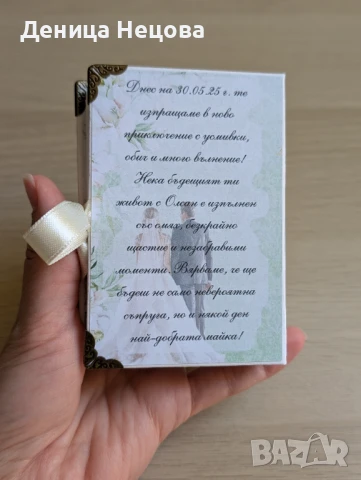 Деница Нецова
Днес на 30.05.25 г. те
изпращаме в ново
приключение с усмивки,
обич и много вълнение!
Нека бъдещият ти
живот с Олсан е изпълнен
със смях, безкрайно
щастие и незабравими
моменти. Вярваме, че ще
бъдеш не само невероятна
съпруга, но и някой ден
най-добрата майка!
BAZAR